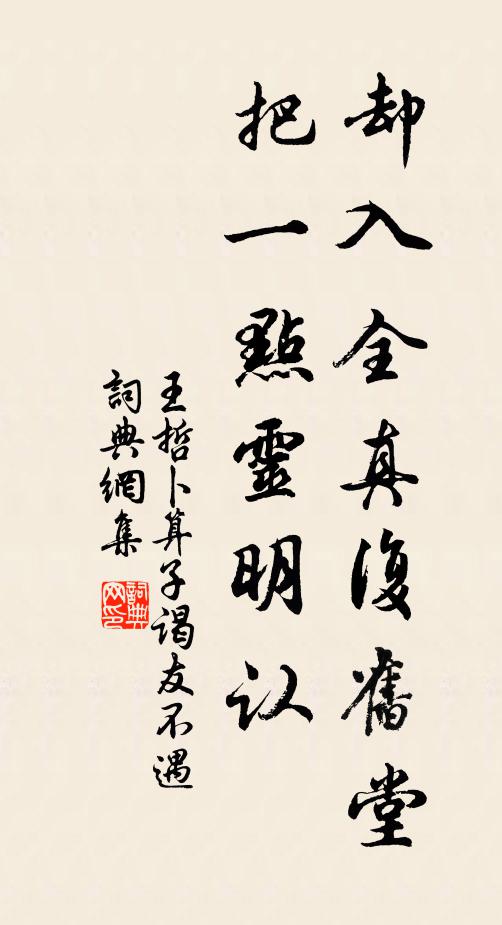 却入全真復舊堂
把一點靈明认
王哲卜算子谒友不遇
詞典網集
詞典网印